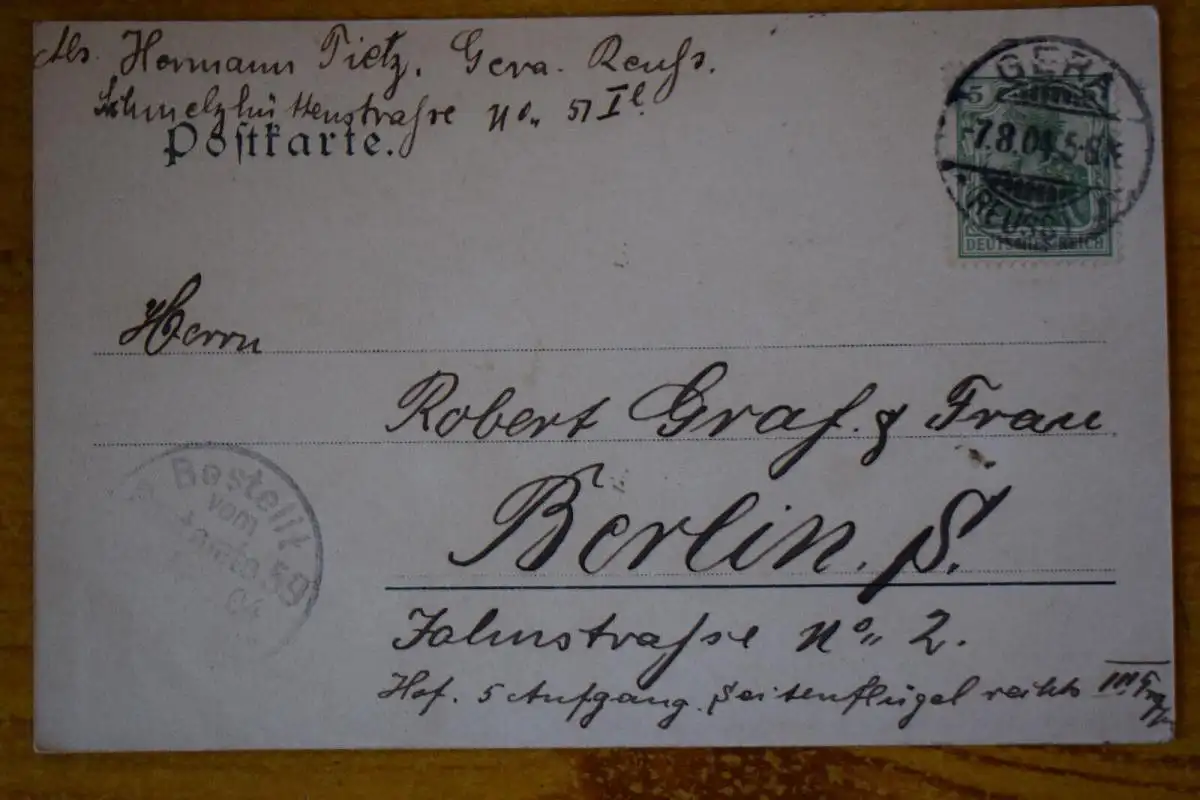 Abs. Hermann Tietz, Gera. Reuß.
Schmelzhüttenstraße No. 57 I
Postkarte.
5
GERA
7.8.04. 5-6
REUSS
DEUTSCHES REICH
Herrn
Robert Graf. & Frau
Berlin. S.
Bestellt
vom
Postamte 59
04
Jahnstraße No. 2.
Hof. 5 Aufgang Seitenflügel rechts III